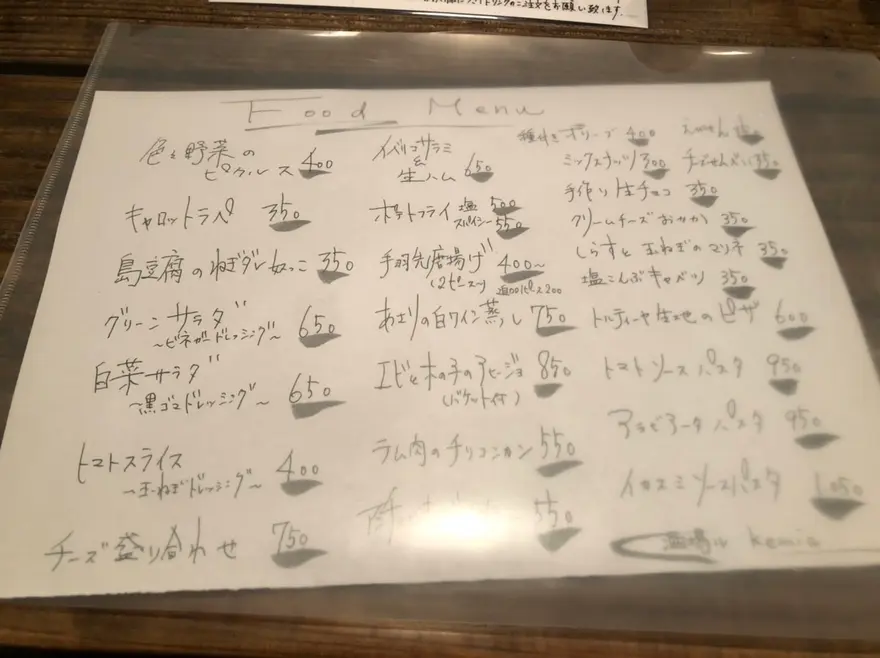 ご注文をお願い致します。
Food Menu
色々野菜の
ピクルス 400
キャロットラペ 350
島豆腐のねぎダレ奴っこ 350
グリーンサラダ 650
~ビネガードレッシング~
白菜サラダ 650
~黒ゴマドレッシング~
トマトスライス 400
~玉ねぎドレッシング~
チーズ盛り合わせ 750
イベリコサラミ
&
生ハム 650
ポテトフライ 塩 500
スパイシー 550
手羽先唐揚げ 400~
(2ピース) 追加1ピース200
あさりの白ワイン蒸し 750
エビと木の子のアヒージョ 850
(バケット付)
ラム肉のチリコンカン 550
550
種付きオリーブ 400
ミックスナッツ 300
チーズせんべい 350
手作り生チョコ 350
クリームチーズおかか 350
しらすと玉ねぎのマリネ 350
塩こんぶキャベツ 350
トルティーヤ生地のピザ 600
トマトソースパスタ 950
アラビアータパスタ 950
イカスミソースパスタ 1,050
酒場ル Kemia